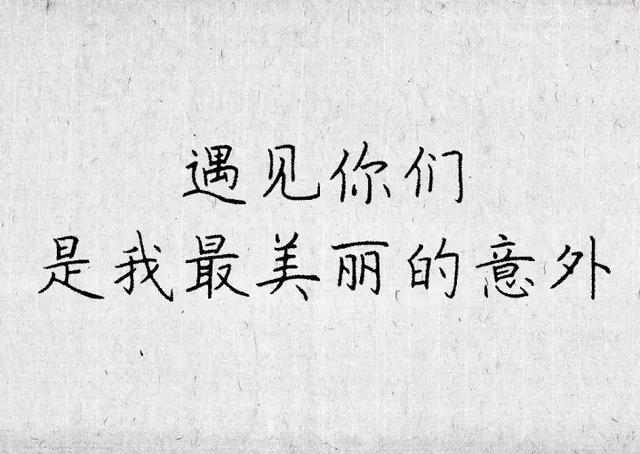 遇见你们
是我最美丽的意外